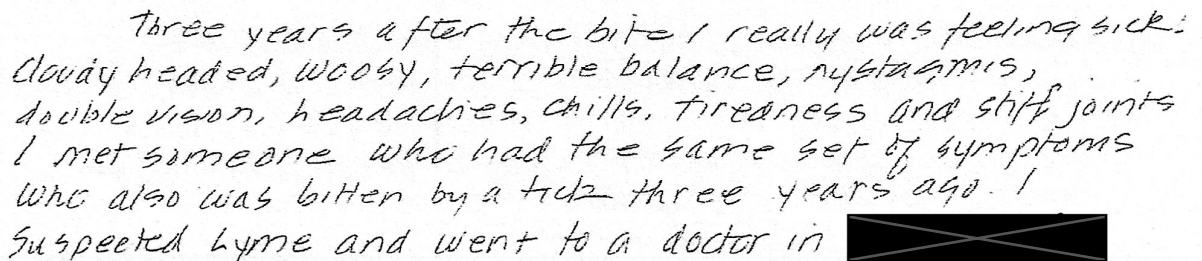 Three years after the bite I really was feeling sick:
cloudy headed, woosy, terrible balance, nystagmis,
double vision, headaches, chills, tiredness and stiff joints
I met someone who had the same set of symptoms
who also was bitten by a tick three years ago. I
suspected Lyme and went to a doctor in